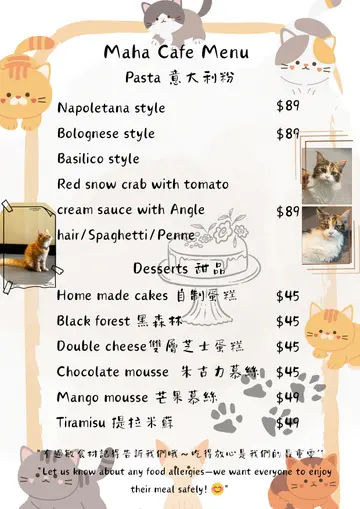 Maha Cafe Menu
Pasta 意大利粉
Napoletana style $89
Bolognese style $89
Basilico style
Red snow crab with tomato
cream sauce with Angle $89
hair/Spaghetti/Penne
Desserts 甜品
Home made cakes 自制蛋糕 $45
Black forest 黑森林 $45
Double cheese雙層芝士蛋糕 $45
Chocolate mousse 朱古力慕絲 $45
Mango mousse 芒果慕絲 $49
Tiramisu 提拉米蘇 $49
"有過敏食材記得告訴我們哦～吃得放心是我們的最重要"
"Let us know about any food allergies—we want everyone to enjoy
their meal safely! 😊"